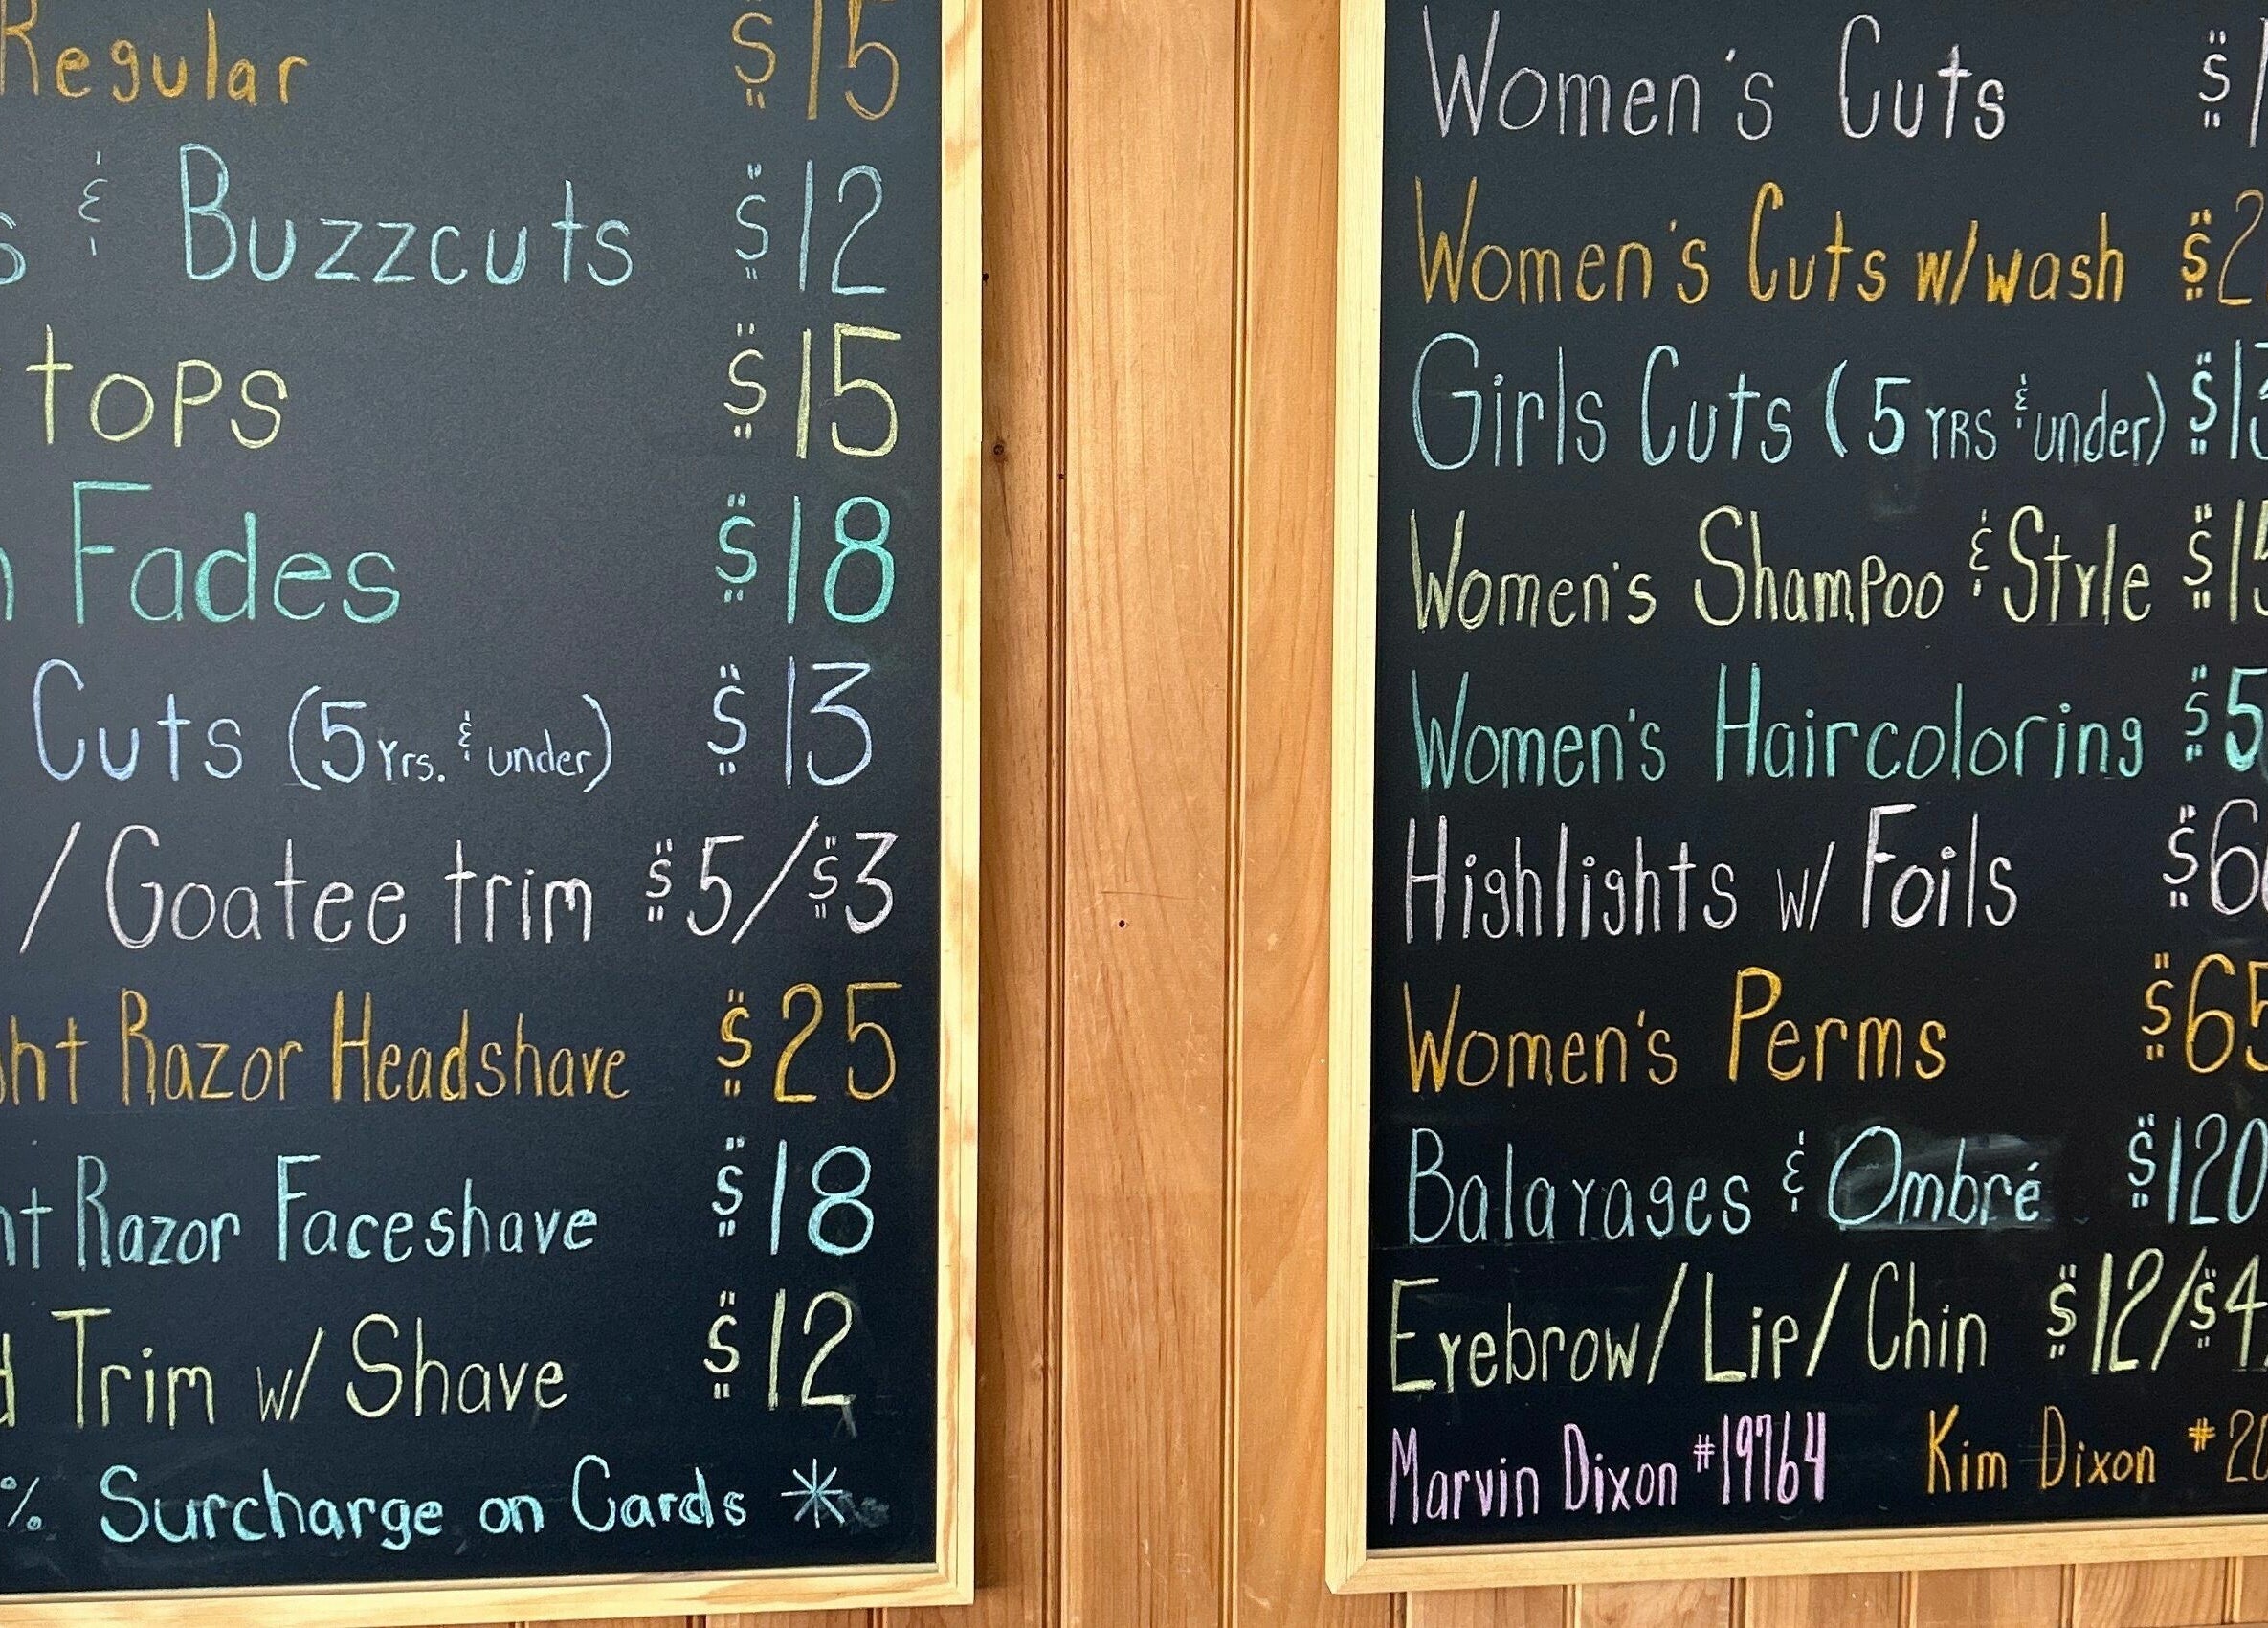 Regular $15
& Buzzcuts $12
tops $15
Fades $18
Cuts (5 yrs. & under) $13
/ Goatee trim $5/$3
Razor Headshave $25
Razor Faceshave $18
Trim w/ Shave $12
% Surcharge on Cards *
Women's Cuts
Women's Cuts w/wash
Girls Cuts (5 YRS & under)
Women's Shampoo & Style
Women's Haircoloring
Highlights w/ Foils
Women's Perms $65
Balayages & Ombré $120
Eyebrow/Lip/Chin $12/$4
Marvin Dixon #19764 Kim Dixon